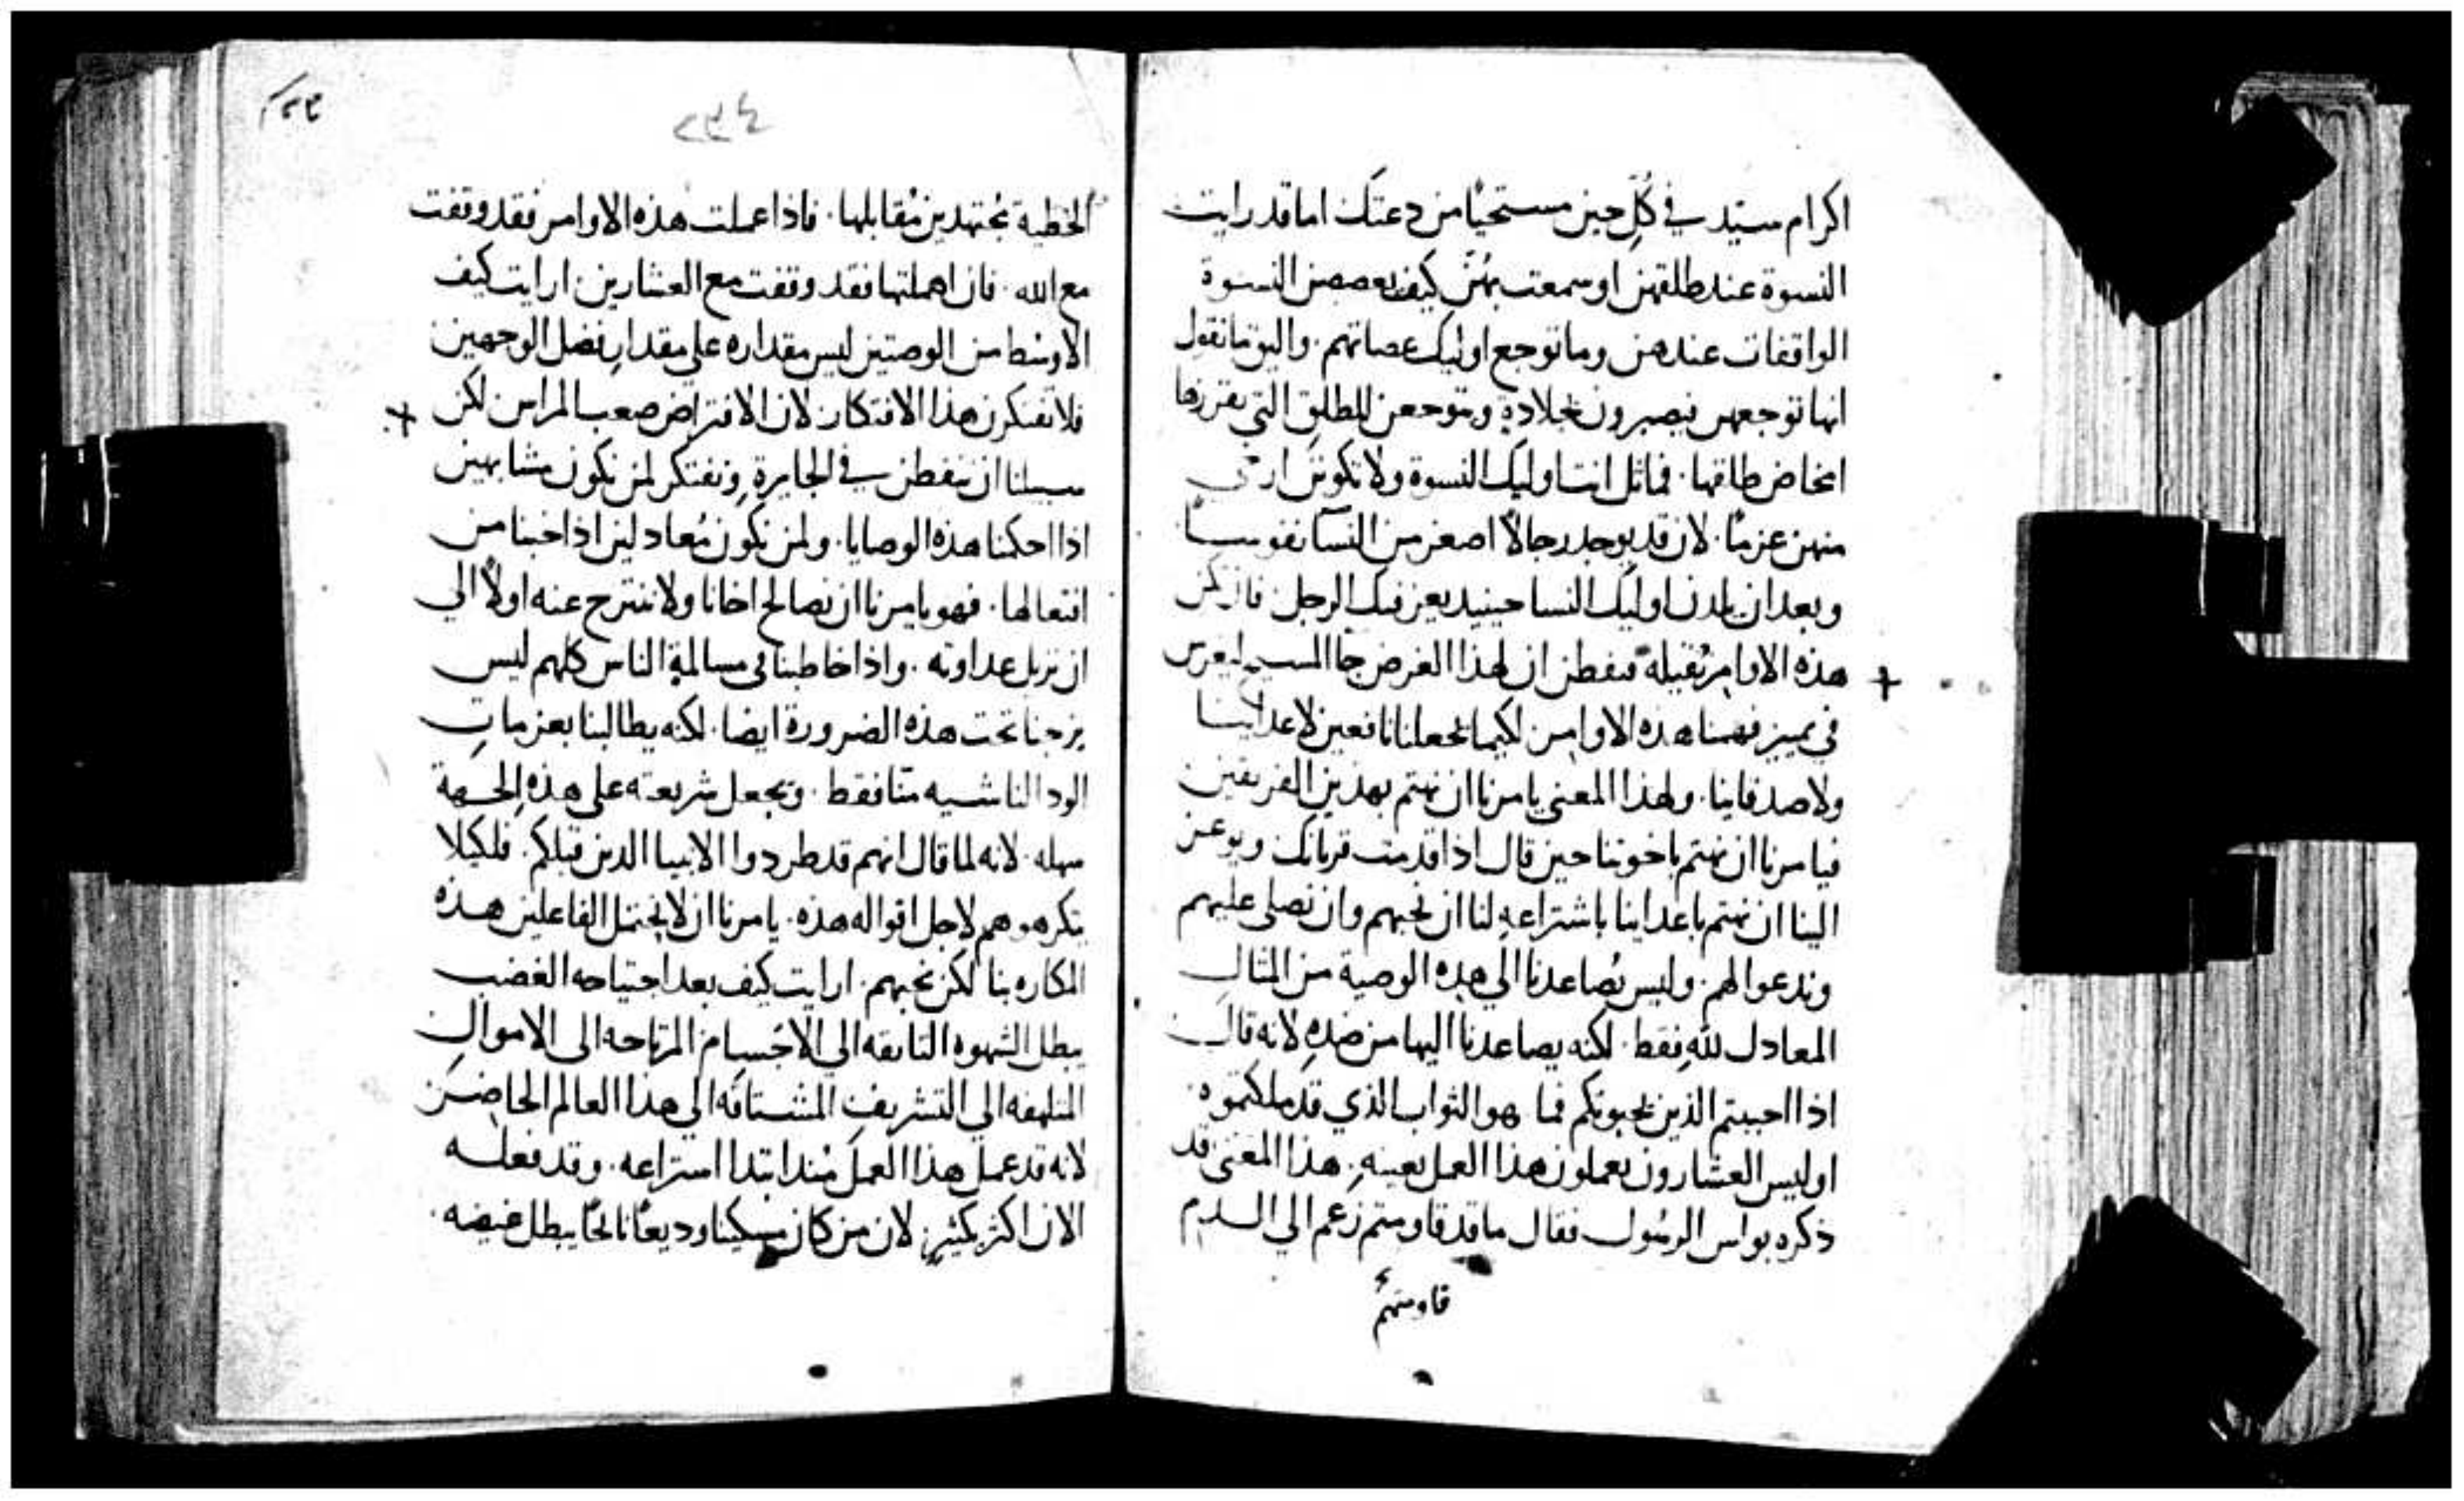 اكرام سيد في كل حين مستحيًا من دعتك اما قد رايت
النسوة عند طلقهن او سمعت بهن كيف النسوة
الواقفات عندهن وما توجع اوليك عضاتهم. واليق ما نقول
انها توجعهن فيصبرون بجلادةٍ وتوجعن للطلق التي
امخاض طلقها. فماثل انت اوليك النسوة ولا تكونن
منهن عزمًا. لان قد يوجد رجالاً اصغر من النسآ نفوسًا
وبعد ان يلدن اوليك النسا حينيد يعرفنك الرجل فان تكن
هذه الاوامر ثقيلة فتفطن ان لهذا الغرض جا المسيح ليغرس
في تمييز فهمنا هذه الاوامر لكيما تجعلنا نافعين لاعداينا
ولاصدقاينا. ولهذا المعنى يامرنا ان نهتم بهذين الفريقين
فيامرنا ان نهتم باخوتنا حين قال اذا قدمت قربانك ويوعز
الينا ان نهتم باعداينا باشتراعهِ لنا ان نحبهم وان نصلي عليهم
وندعوا لهم. وليس يُصاعدنا الي هذه الوصية من المثال
المعادل للهِ فقط. لكنه يصاعدنا اليها من ضدهِ لانه قال
اذا احببتم الذين يحبونكم فما هو الثواب الذي قد ملكتموه.
اوليس العشارون يعملون هذا العمل بعينهِ. هذا المعنى قد
ذكره بولس الرسُول فقال ما قد قاومتم زعم الي الدم
قاومتهم
٢٣٤
الخطية مجتهدين مُقابلها. فاذا عملت هذه الاوامر فقد وقفت
مع الله. فان اهملتها فقد وقفت مع العشارين. ارايت كيف
الاوسط من الوصيتين ليس مقداره علي مقدار فضل الوجهين
فلا تفتكرن هذا الافتكار لان الافتراض صعب المراس لكن
سبيلنا ان نتفطن في الجايرةِ ونفتكر لمن نكون مشابهين
اذا احكمنا هذه الوصايا. ولمن نكون مُعادلين اذا خبنا من
افتعالها. فهو يامرنا ان نصالح اخانا ولا ننتزح عنه اولاً الي
ان نزيل عداوته. واذا خاطبنا في مسالمة الناس كلهم ليس
يزجنا تحت هذه الضرورة ايضا. لكنه يطالبنا بعزماتِ
الود الناشيه منا فقط. ويجعل شريعته على هذهِ الجهة
سهله. لانه لما قال انهم قد طردوا الانبيا الدين قبلكم. فلكيلا
يكرهوهم لاجل اقواله هذه. يامرنا ان لا نحتمل الفاعلين هذه
المكاره بنا لكن نحبهم. ارايت كيف بعد اجتياحه الغضب
يبطل الشهوه التايقه الي الاجسام المرتاحه الى الاموال
المتلهفه الي التشريف المشتاقه الي هذا العالم الحاضر
لانه قد عمل هذا العمل مُند ابتدا استراعه. وقد فعله
الان اكثر بكثيرٍ لان من كان مسكينا وديعًا نايحًا يبطل غيضه.